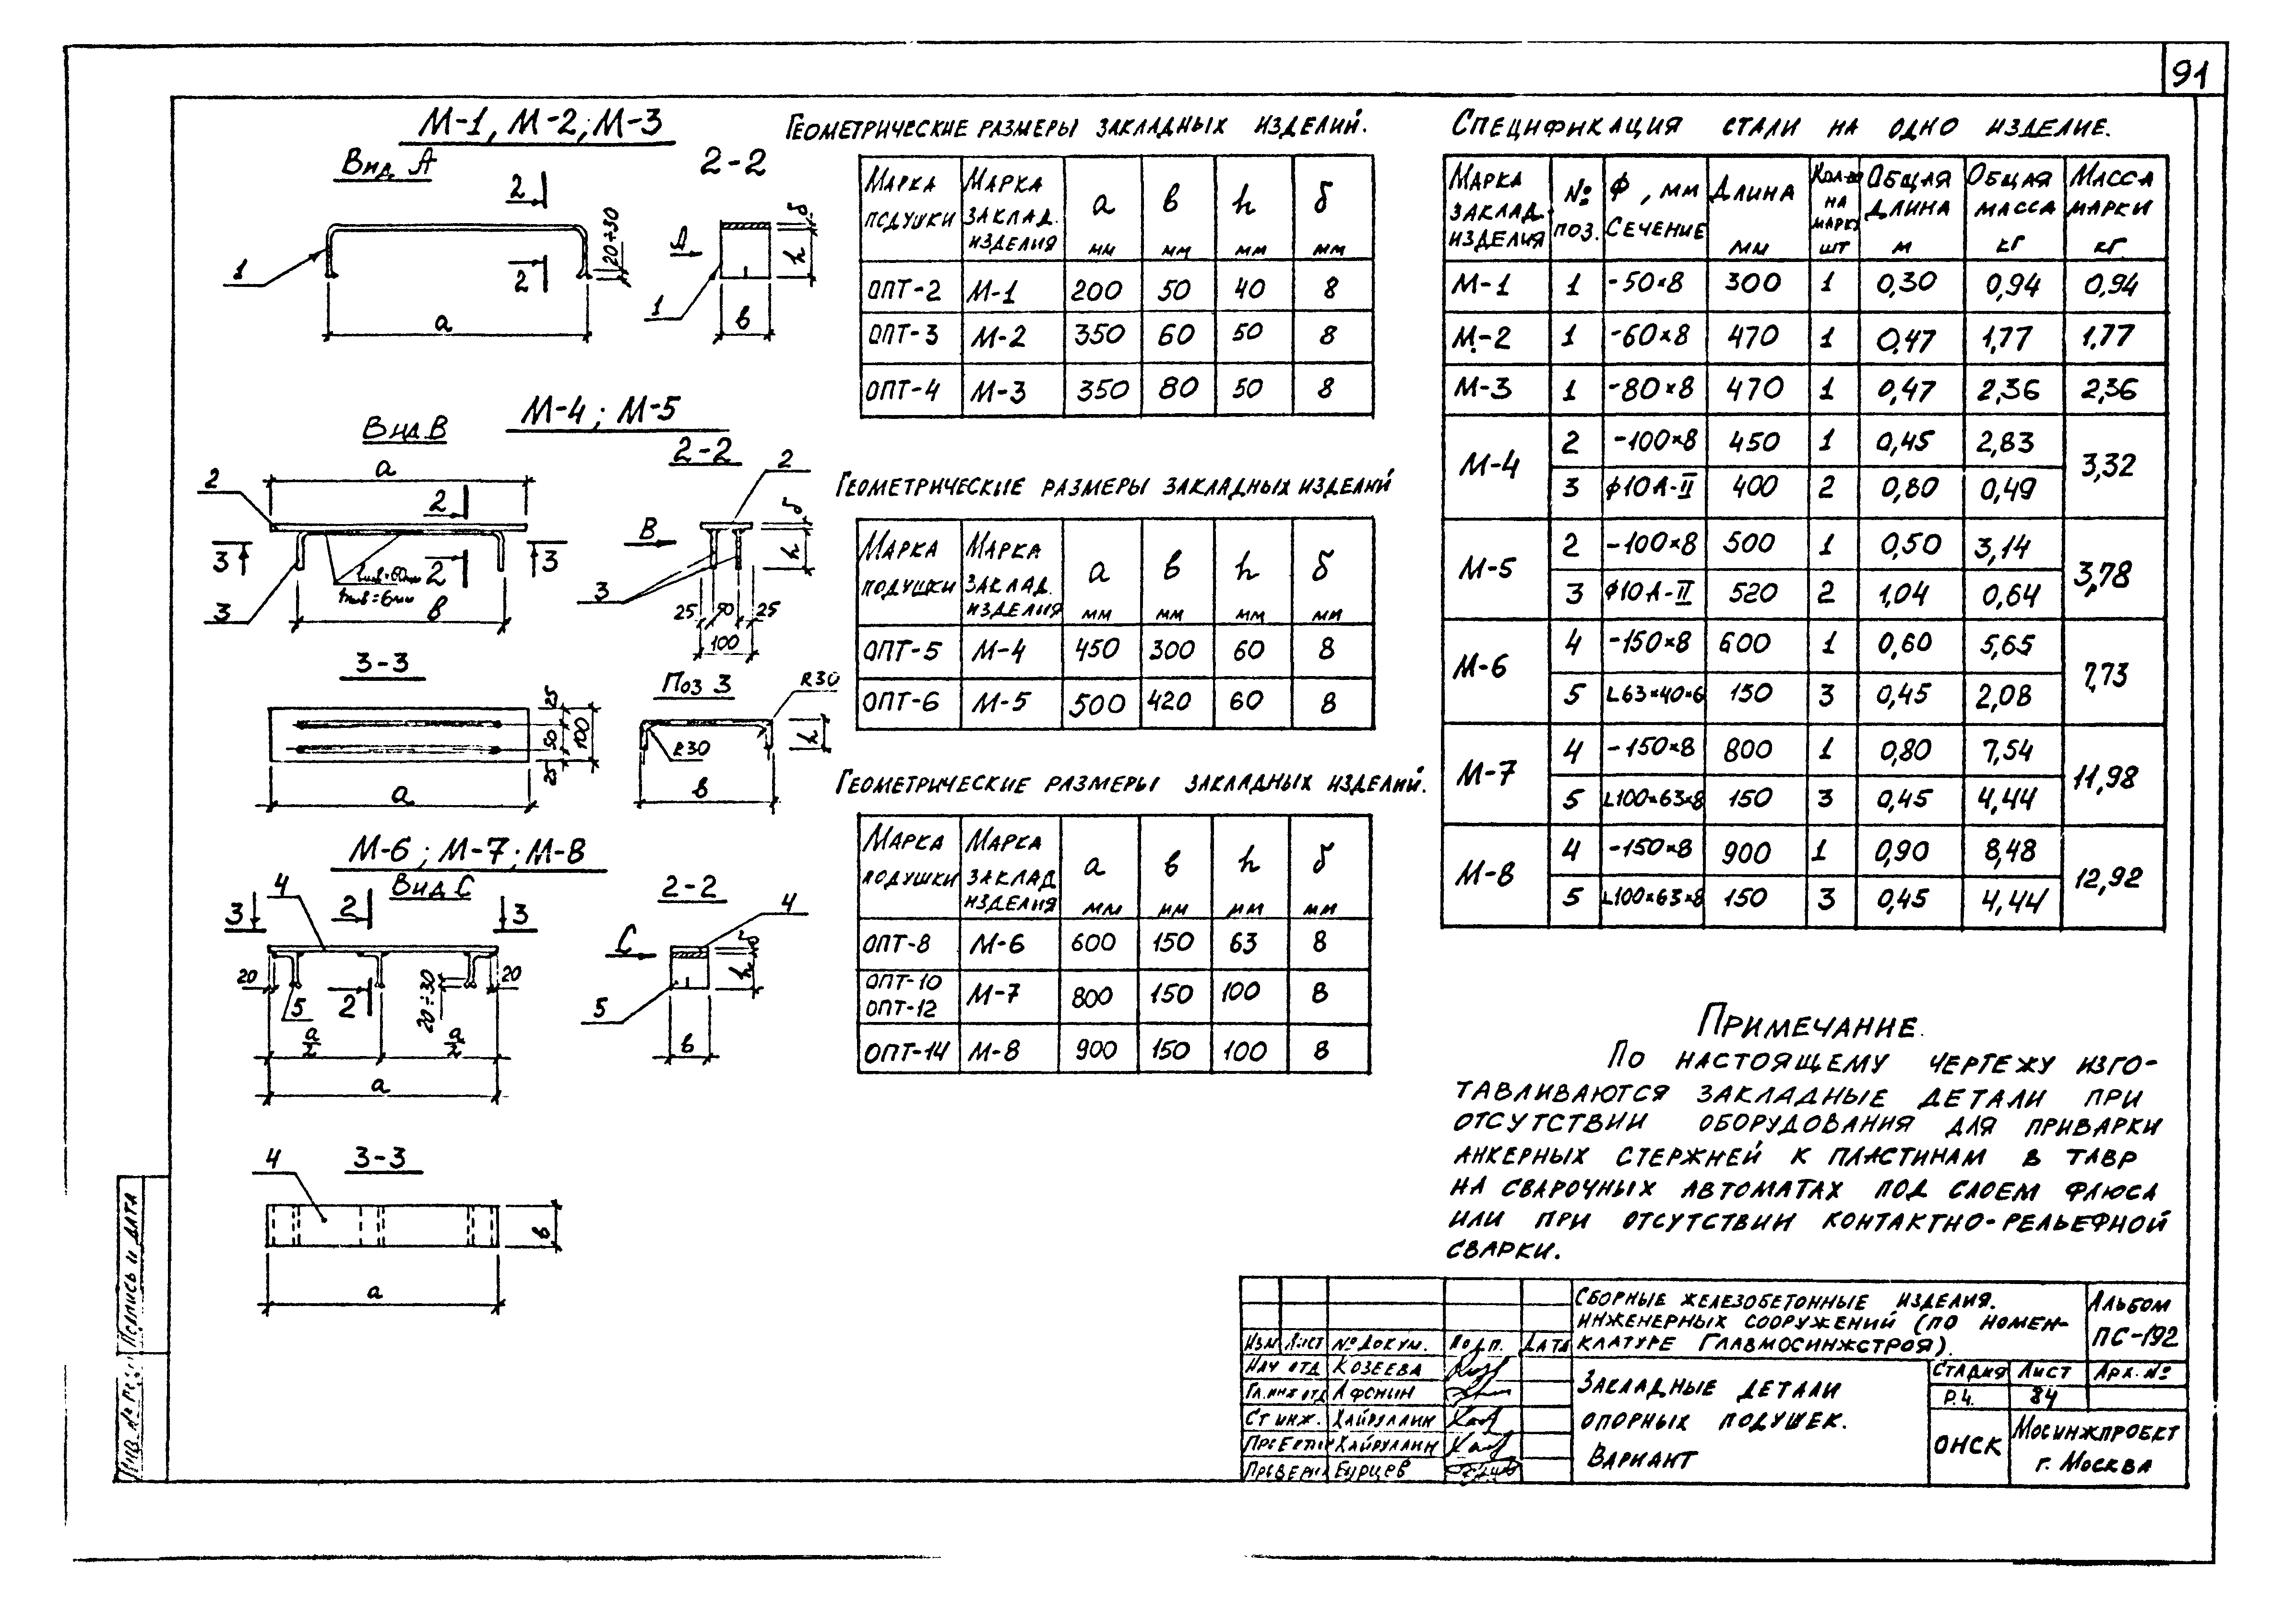 91
М-1, М-2; М-3
Вид А
2-2
2
2
1
20÷30
а
А
1
δ
h
в
М-4; М-5
Вид В
2-2
а
2
2
3
3
2
tшв=6мм
3
в
2
В
δ
h
3
25 50 25
100
3-3
25
50
25
100
а
Поз 3
R30
R30
h
в
М-6; М-7; М-8
Вид С
2-2
4
3
2
3
20
5
2
20÷30
20
а/2
а/2
а
С
4
δ
h
5
в
4
3-3
в
а
Геометрические размеры закладных изделий.
Марка подушки | Марка заклад. изделия | а мм | в мм | h мм | δ мм
ОПТ-2 | М-1 | 200 | 50 | 40 | 8
ОПТ-3 | М-2 | 350 | 60 | 50 | 8
ОПТ-4 | М-3 | 350 | 80 | 50 | 8
Геометрические размеры закладных изделий
Марка подушки | Марка заклад. изделия | а мм | в мм | h мм | δ мм
ОПТ-5 | М-4 | 450 | 300 | 60 | 8
ОПТ-6 | М-5 | 500 | 420 | 60 | 8
Геометрические размеры закладных изделий.
Марка подушки | Марка заклад изделия | а мм | в мм | h мм | δ мм
ОПТ-8 | М-6 | 600 | 150 | 63 | 8
ОПТ-10 ОПТ-12 | М-7 | 800 | 150 | 100 | 8
ОПТ-14 | М-8 | 900 | 150 | 100 | 8
Спецификация стали на одно изделие.
Марка заклад. изделия | № поз. | Ф, мм Сечение | Длина мм | Кол-во на марку шт | Общая длина м | Общая масса кг | Масса марки кг.
М-1 | 1 | -50×8 | 300 | 1 | 0,30 | 0,94 | 0,94
М-2 | 1 | -60×8 | 470 | 1 | 0,47 | 1,77 | 1,77
М-3 | 1 | -80×8 | 470 | 1 | 0,47 | 2,36 | 2,36
М-4 | 2 | -100×8 | 450 | 1 | 0,45 | 2,83 | 3,32
3 | ф10А-II | 400 | 2 | 0,80 | 0,49
М-5 | 2 | -100×8 | 500 | 1 | 0,50 | 3,14 | 3,78
3 | ф10А-II | 520 | 2 | 1,04 | 0,64
М-6 | 4 | -150×8 | 600 | 1 | 0,60 | 5,65 | 7,73
5 | L63×40×6 | 150 | 3 | 0,45 | 2,08
М-7 | 4 | -150×8 | 800 | 1 | 0,80 | 7,54 | 11,98
5 | L100×63×8 | 150 | 3 | 0,45 | 4,44
М-8 | 4 | -150×8 | 900 | 1 | 0,90 | 8,48 | 12,92
5 | L100×63×8 | 150 | 3 | 0,45 | 4,44
Примечание.
По настоящему чертежу изго-
тавливаются закладные детали при
отсутствии оборудования для приварки
анкерных стержней к пластинам в тавр
на сварочных автоматах под слоем флюса
или при отсутствии контактно-рельефной
сварки.
Сборные железобетонные изделия.
инженерных сооружений (по номен-
клатуре Главмосинжстроя).
Альбом
ПС-192
Изм Лист № докум. Подп. Дата
Нач отд Козеева
Гл.инж отд Афонин
Ст инж. Хайруллин
Хайруллин
Бурцев
Закладные детали
опорных подушек.
Вариант
Стадия Лист Арх. №
Р.Ч. 84
ОНСК
Мосинжпроект
г. Москва
Подпись и дата